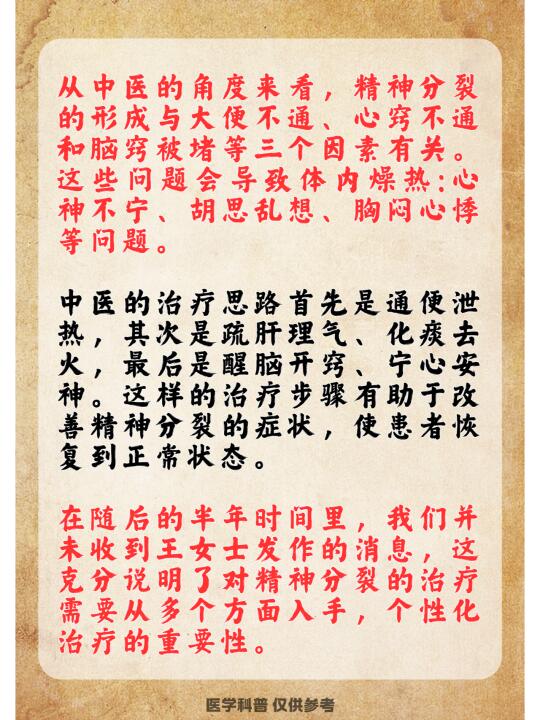 从中医的角度来看，精神分裂
的形成与大便不通、心窍不通
和脑窍被堵等三个因素有关。
这些问题会导致体内燥热:心
神不宁、胡思乱想、胸闷心悸
等问题。
中医的治疗思路首先是通便泄
热，其次是疏肝理气、化痰去
火，最后是醒脑开窍、宁心安
神。这样的治疗步骤有助于改
善精神分裂的症状，使患者恢
复到正常状态。
在随后的半年时间里，我们并
未收到王女士发作的消息，这
克分说明了对精神分裂的治疗
需要从多个方面入手，个性化
治疗的重要性。
医学科普 仅供参考